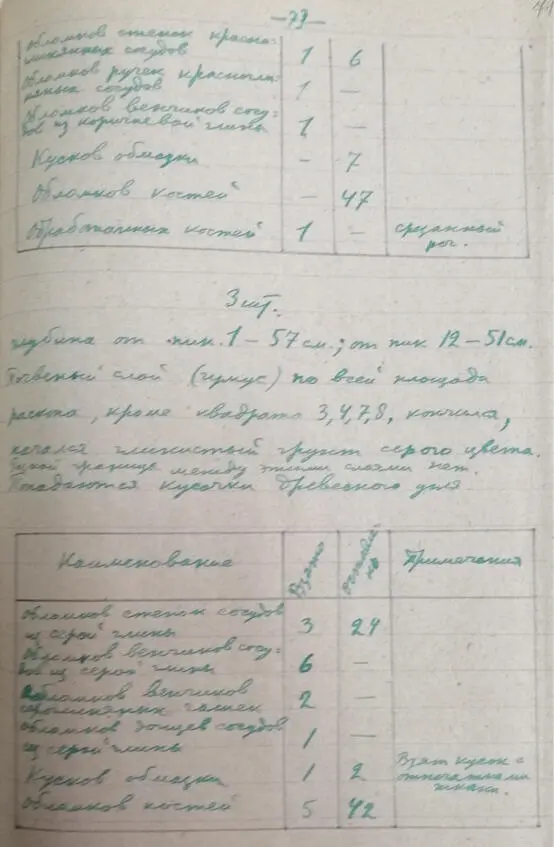 —73—
Обломков стенок красно-
глиняных сосудов 1 6
Обломков ручек красногли-
няных сосудов 1 —
Обломков венчиков сосу-
дов из коричневой глины 1 —
Кусков обмазки – 7
Обломков костей – 47
Обработанных костей 1 – срезанный
рог.
3 шт.
Глубина от пик. 1 – 57 см.; от пик. 12 – 51 см.
Почвеный слой (гумус) по всей площада
раскопа, кроме квадрата 3,4,7,8, кончился,
начался глинистый грунт серого цвета.
границе между этими слоями нет.
Попадаются кусочки древесного угля
Наименование Взято оставле-
но Примечания
Обломков стенок сосудов
из серой глины 3 24
Обломков венчиков сосу-
дов из серой глины 6 —
Обломков венчиков
чашек 2 —
Обломков донцев сосудов
из серой глины 1 —
Кусков обмазки 1 2 Взят кусок с
отпечатками
ткани.
Обломков костей 5 42